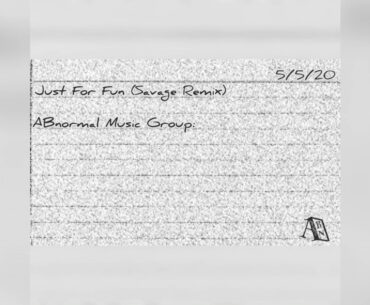 5/5/20
Just For Fun (Savage Remix)
ABnormal Music Group: